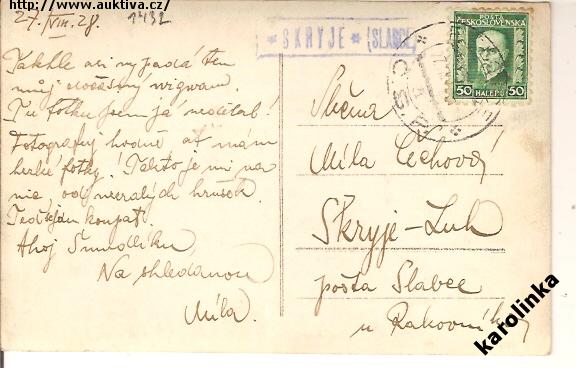 http://www.auktiva.cz/
27. VIII. 28.
1432
* SKRYJE * (SLABCE)
POŠTA
ČESKOSLOVENSKÁ
50 HALÉŘŮ 50
Takhle asi vypadá ten
můj dočasný wigwam.
Tu fotku jsem já nedělal!
Fotografuj hodně ať mám
hezké fotky! Takto je mi na
nic, od nezralých hrušek.
Teď jdu koupat.
Ahoj
Na shledanou
Míla.
Slečna
Míla Čechová
Skryje-Luh
pošta Slabce
u Rakovníka
karolinka